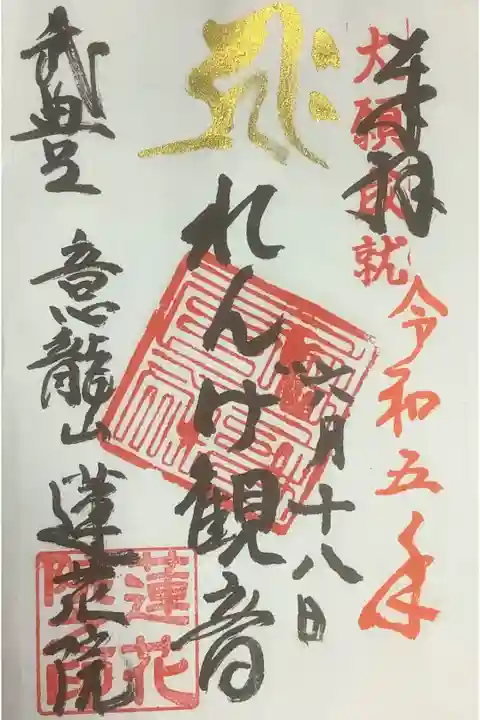 大願成就
奉拝
令和五年
六月十八日
れんげ観音
武豊 意龍山 蓮花院
蓮花院印